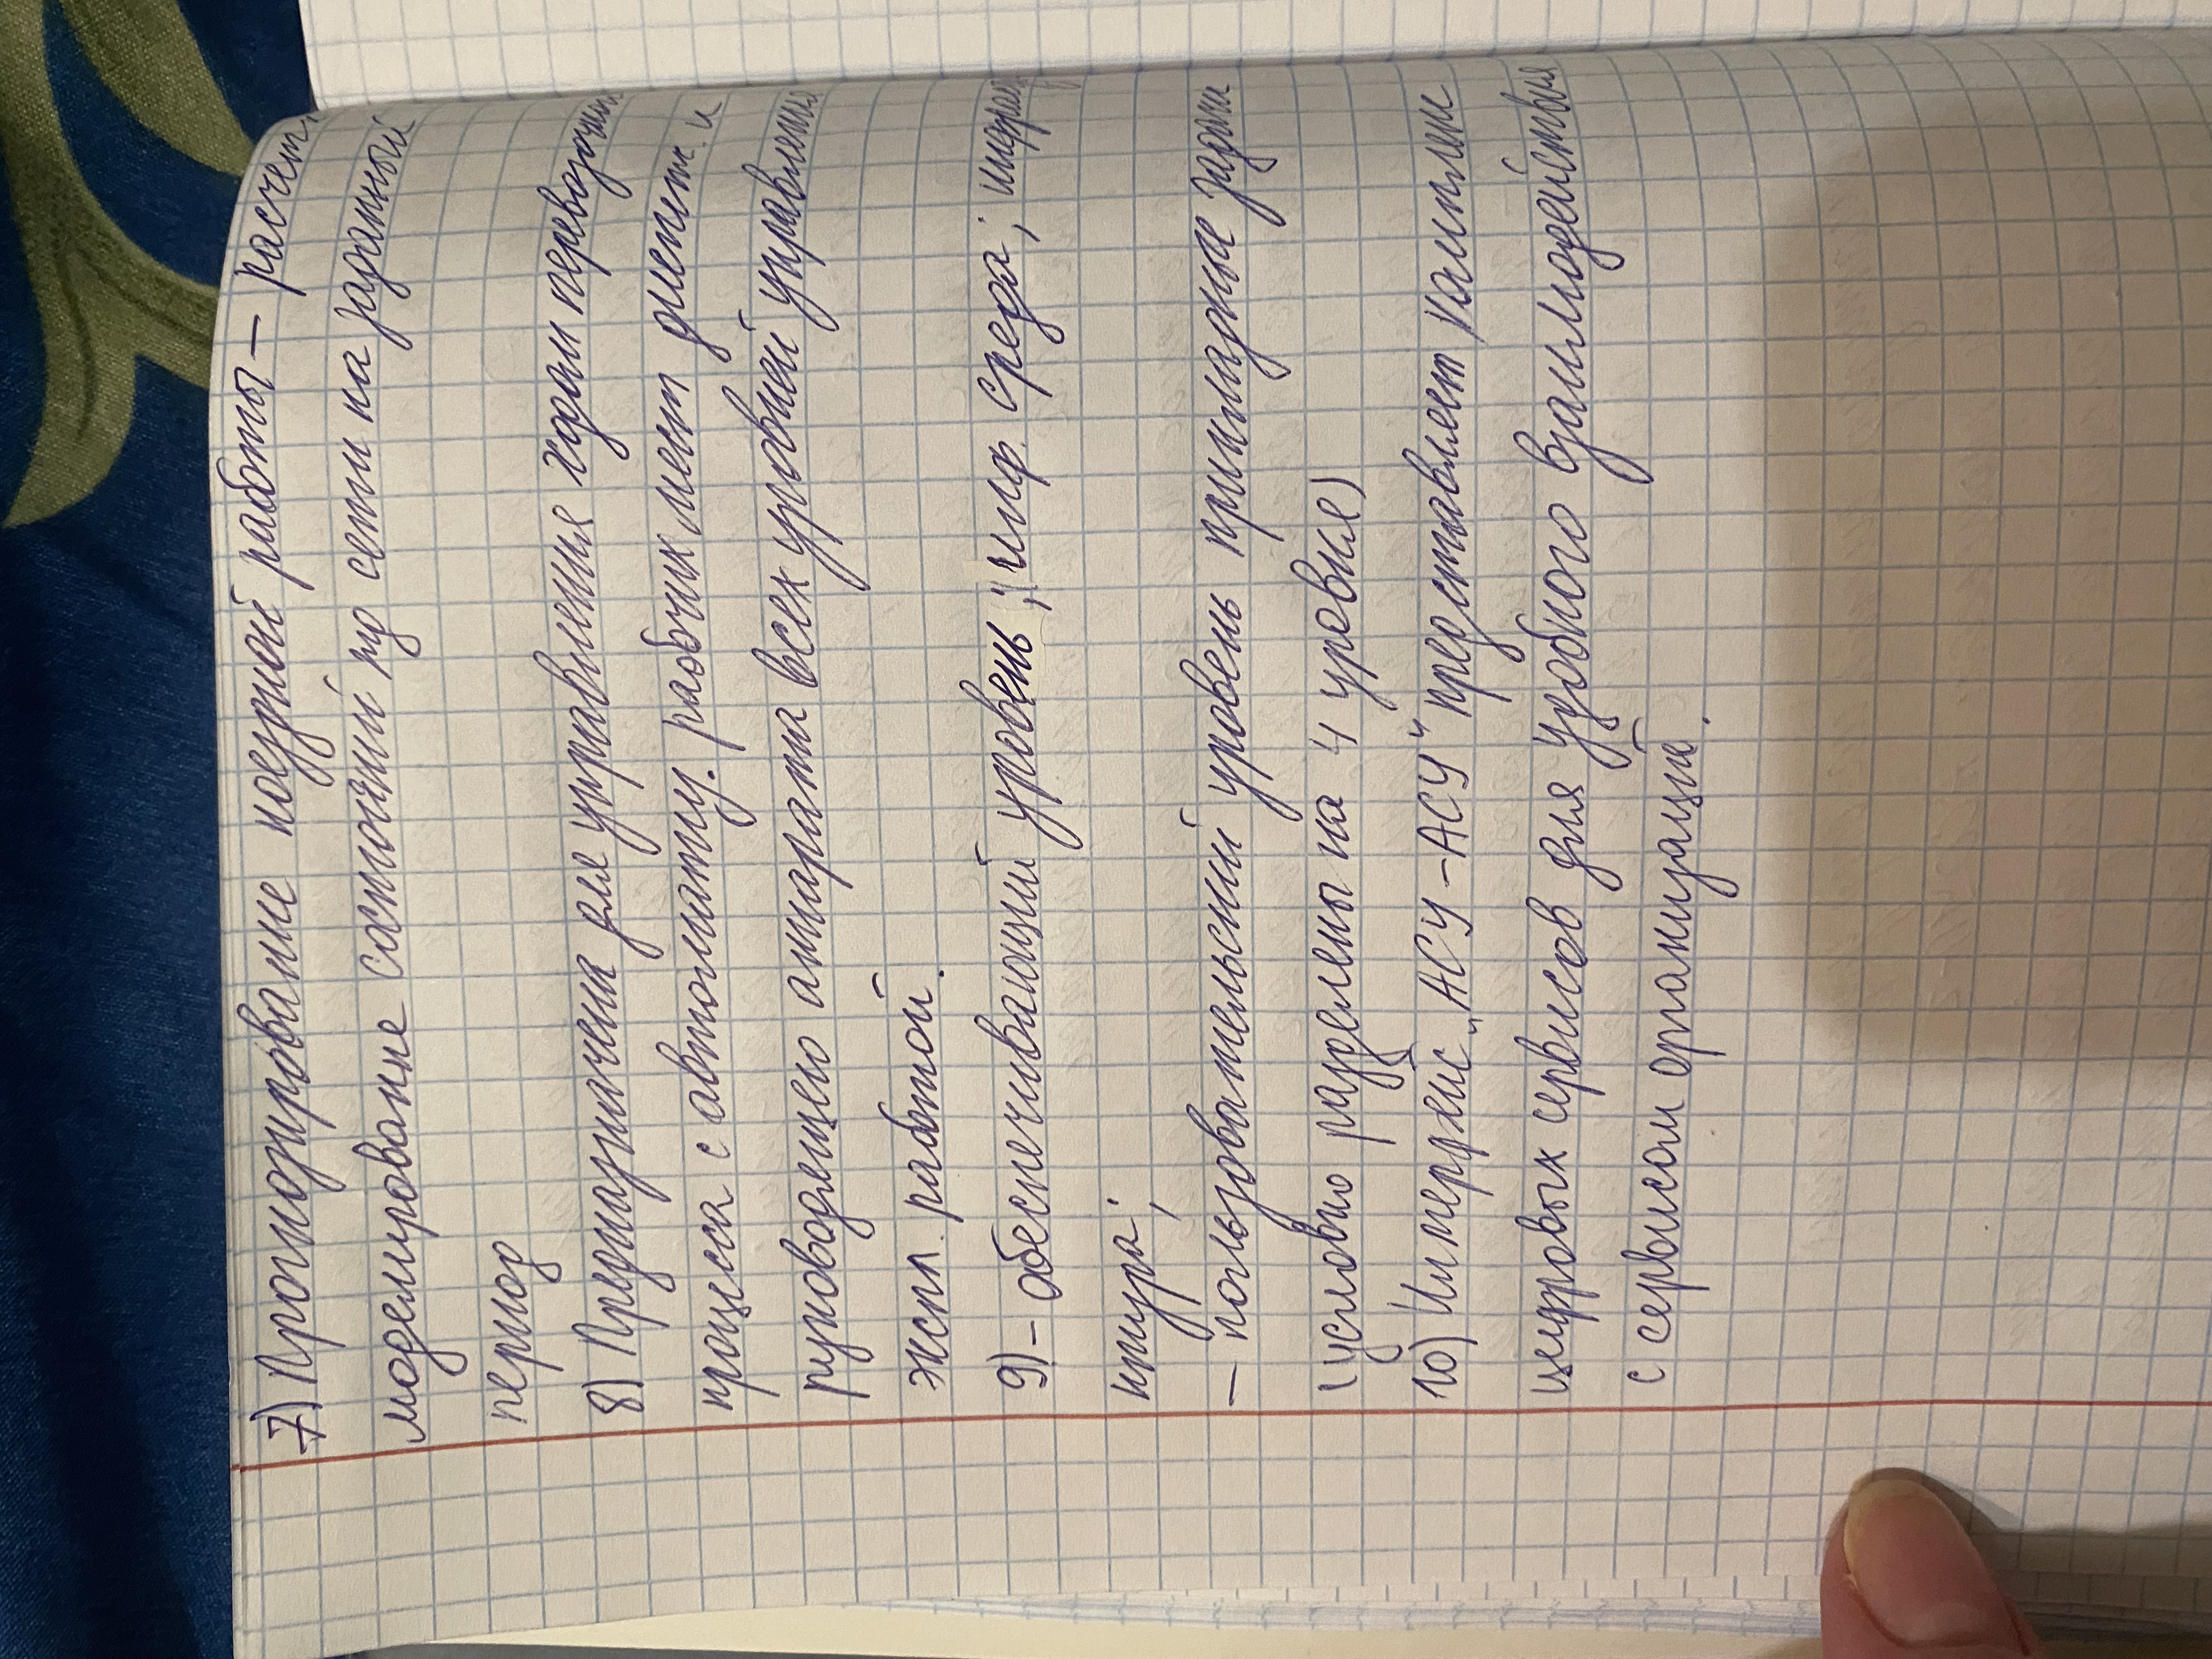 7) Прогнозирование поездной работы – расчет,
моделирование состояний по сети на заданный
период
8) Предназначена для управления ходом перевозочн
процесса с автоматиз. рабочих мест диспетч. и
руководящего аппарата всех уровней управления
экспл. работой.
9) – обеспечивающий уровень; инф. среда; инфрастр
ктура;
– пользовательский уровень прикладные задачи
(условно разделены на 4 уровня)
10) Интерфейс „АСУ–АСУ" представляет комплекс
цифровых сервисов для удобного взаимодействия
с сервисом организаций.